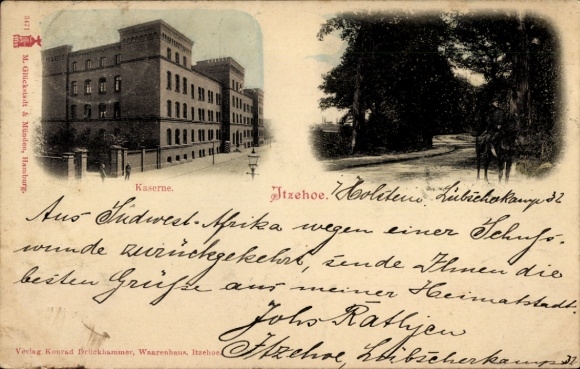 3471
M. Glückstadt & Münden, Hamburg.
Kaserne.
Itzehoe. i/Holstein, Lübscherkamp 32
Aus Südwest-Afrika wegen einer Schuß-
wunde zurückgekehrt, sende Ihnen die
besten Grüße aus meiner Heimatstadt.
Johs Rathjen
Itzehoe, Lübscherkamp 32
Verlag Konrad Drückhammer, Waarenhaus, Itzehoe.